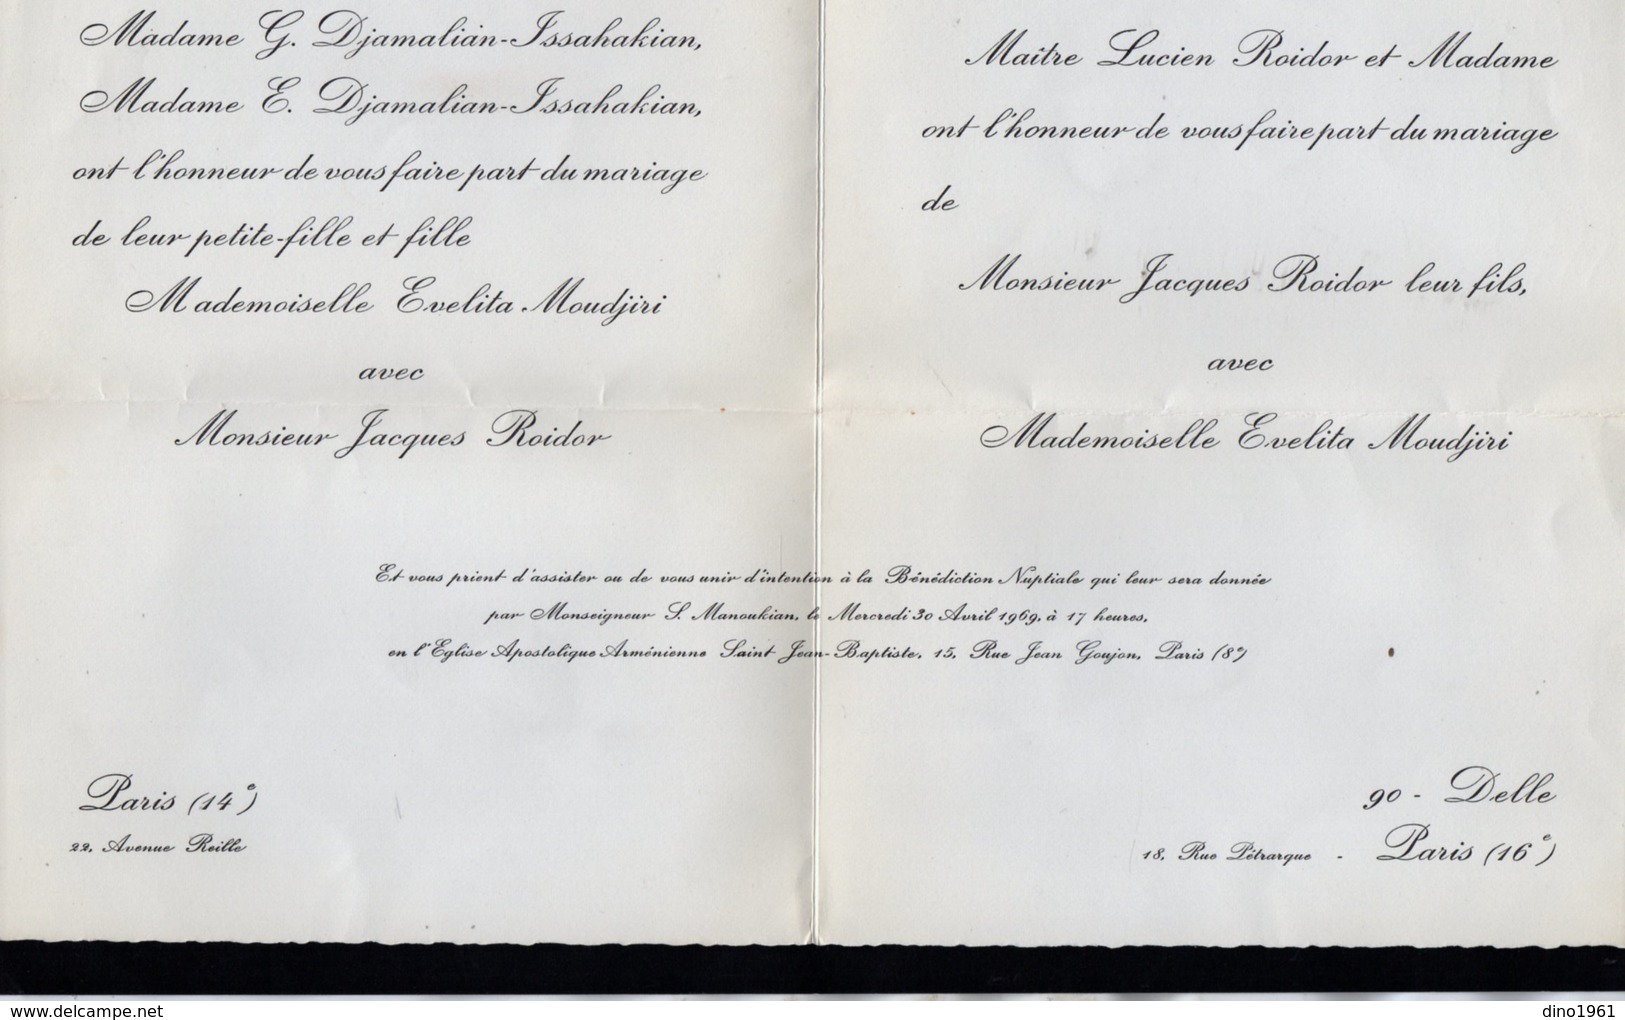 Madame G. Djamalian-Issahakian,
Madame E. Djamalian-Issahakian,
ont l'honneur de vous faire part du mariage
de leur petite-fille et fille
Mademoiselle Evelita Moudjiri
avec
Monsieur Jacques Roidor
Maître Lucien Roidor et Madame
ont l'honneur de vous faire part du mariage
de
Monsieur Jacques Roidor leur fils,
avec
Mademoiselle Evelita Moudjiri
Et vous prient d'assister ou de vous unir d'intention à la Bénédiction Nuptiale qui leur sera donnée
par Monseigneur S. Manoukian, le Mercredi 30 Avril 1969, à 17 heures,
en l'Eglise Apostolique Arménienne Saint Jean-Baptiste, 15, Rue Jean Goujon, Paris (8e)
Paris (14e)
22, Avenue Reille
90 - Delle
18, Rue Pétrarque - Paris (16e)
dino1961